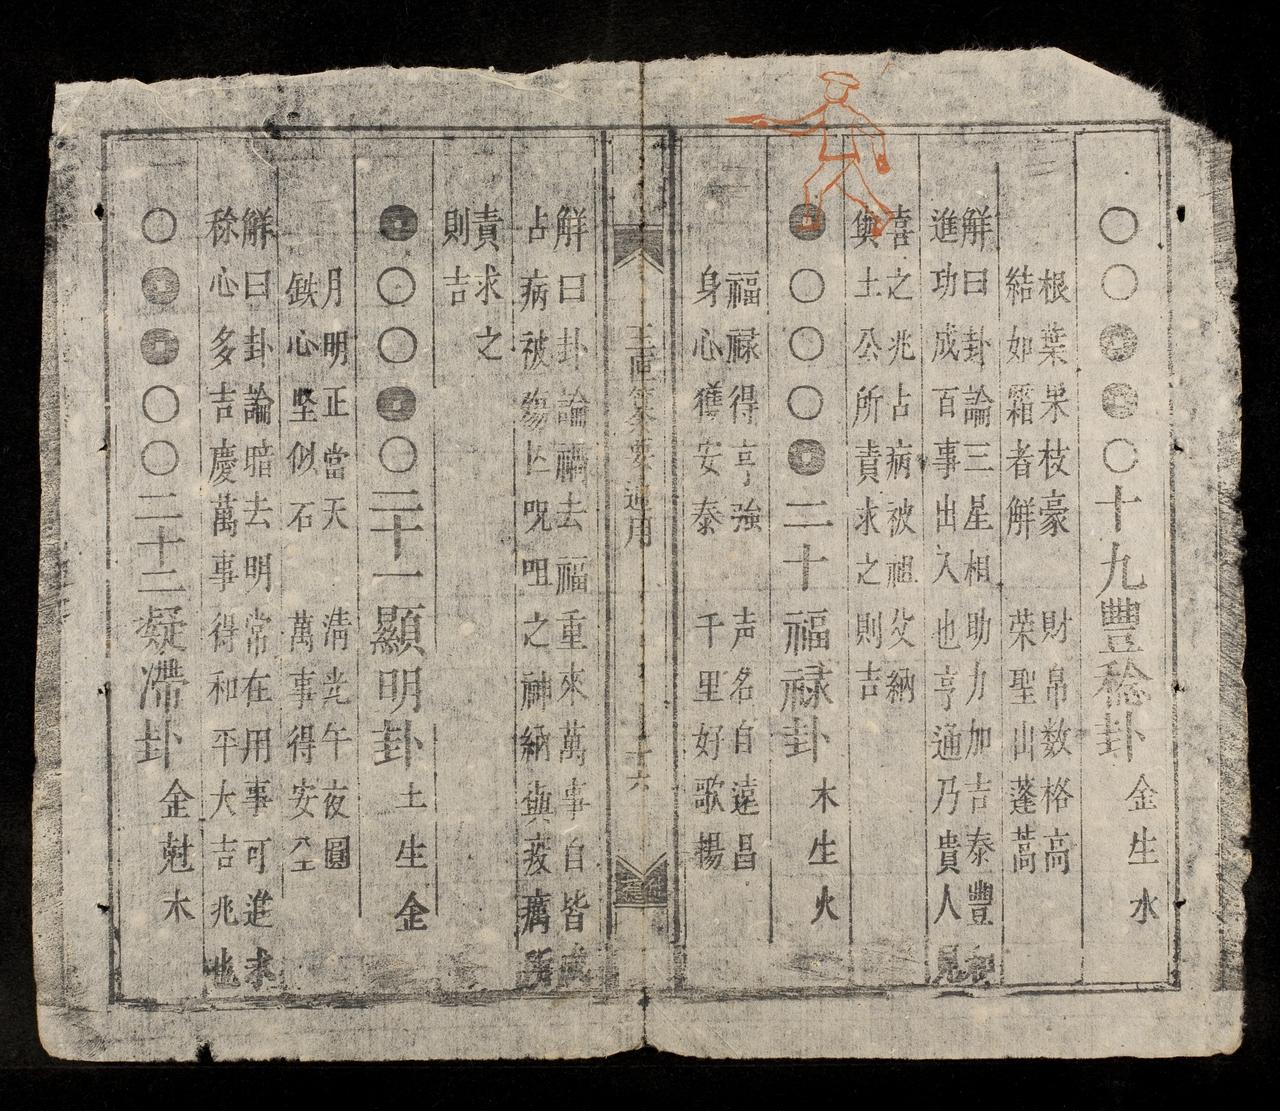 ○○●●○十九豐稔卦 金生水
根葉果枝豪 財帛数格高
結如霜者解 荣聖出蓬蒿
解曰卦論三星相助力加吉泰豐
進功成百事出入也亨通乃貴人見
喜之兆占病被祖父納
與土公所責求之則吉
●○○○●二十福禄卦 木生火
福禄得亨強 声名自遠昌
身心獲安泰 千里好歌揚
玉匣 要 運用 十六
解曰卦論禍去福重來萬事自皆
占病被傷亡咒咀之神納與疫癘所
責求之
則吉
●○○●○二十一顯明卦 土生金
月明正當天 清光午夜圓
鉄心坚似石 萬事得安全
解曰卦論暗去明常在用事可進求
稌心多吉慶萬事得和平大吉兆也
○●●○○二十二疑滯卦 金尅木